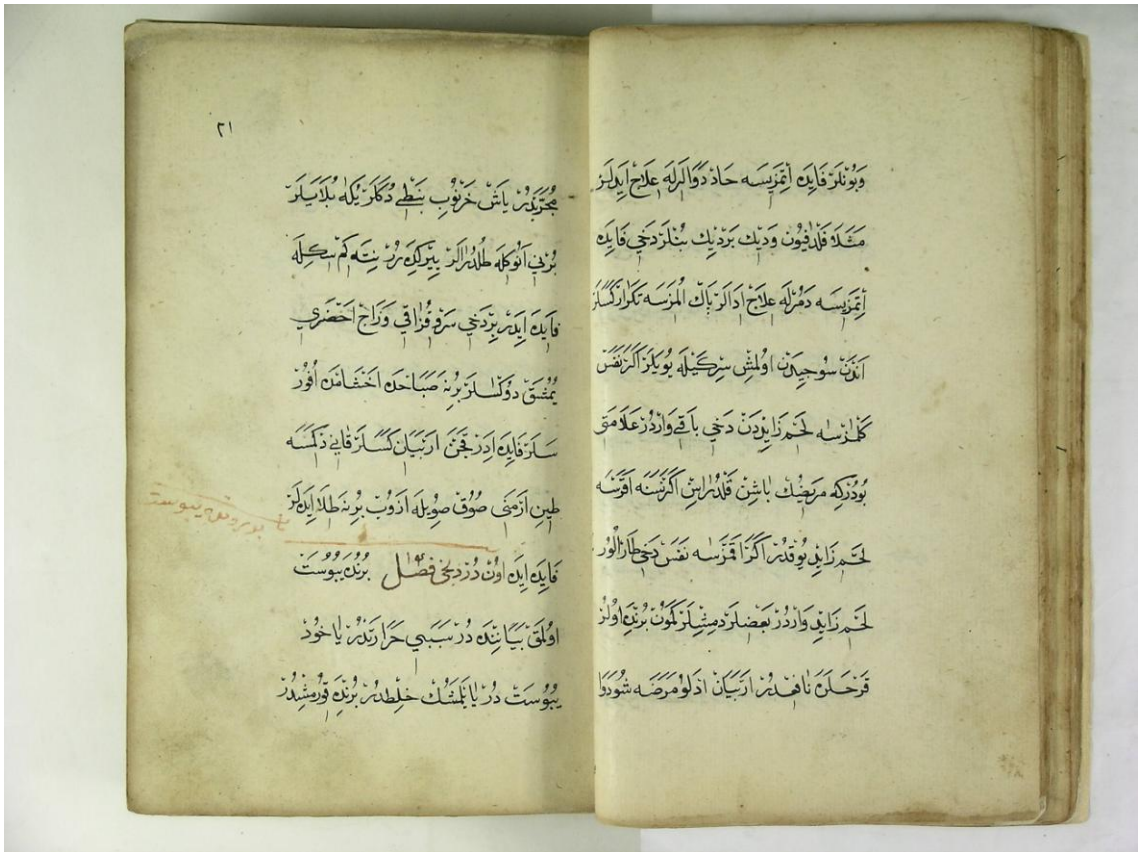 وَبُونْلَرْ فَايِدَه اِتْمَزِيسَه حَادْ دَوَالَرْلَه عِلَاجْ اِيدَلَرْ
مَثَلَا قَلْدَفْيُونْ وَدِيكْ بَرْدِيكْ بُنْلَرْ دَخِي فَايِدَه
اِتْمَزِيسَه دَمُرْلَه عِلَاجْ اِدَالَرْ بَاكْ اُلْمَزْسَه تَكْرَارْ كَسَالَرْ
اَنْدَنْ سُوجِيدَنْ اُولْمِشْ سِرْكَيْلَه يُويَلَرْ اَكَرْ نَفَسْ
كَلْمَزْسَه لَحْمِ زَايِدْدَنْ دَخِي بَاقِي وَارْدُرْ عَلَامَتِي
بُودُرْكِه مَرِيضُكْ بَاشِنْ قَلْدُرَاسِنْ اَكَرْ نَسْنَه اَقَرْسَه
لَحْمِ زَايِدْ يُوقْدُرْ اَكَرْ اَقْمَزْسَه نَفَسْ دَخِي طَارْ اُلُورْ
لَحْمِ زَايِدْ وَارْدُرْ بَعْضِلَرْ دِمِشْلَرْ كَمُونْ بُرُنْدَه اُولَنْ
قَرْحَلَرَه نَافِعْدُرْ اَرْبَيَانْ اِدْلُو مَرَضَه شُو دَوَا
٢١
مُجَرَّبْدُرْ يَاشْ خَرْنُوبِ نَبَطِي دُكَالَرْ يُكْلَه بُلَايَلَرْ
بُرْنِي اَنُوكْلَه طُلْدُرَالَرْ بِيرَكِدَه رُرْ نِتَه كِمْ سِكِلَه
فَايِدَه اِيدَرْ بِرْ دَخِي سَرْو قُزَاقِي وَزَاجْ اَخْضَرِي
يُمْشَقْ دُوكَسَلَرْ بُرْنَه صَبَاحْدَه اَخْشَامْدَه اُفُورْ
سَلَرْ فَايِدَه اِدَرْ قَچَنْ اَرْبَيَانْ كَسَلَرْ قَانِي دِكْمَسَه
طِينِ اَرْمَنِي صُوقْ صُويِلَه اَزُوبْ بُرْنَه طَلَا اِيدَلَرْ
فَايِدَه اِيدَه اُونْ دُرْدنْجِي فَصْل بُرُنْدَه يُبُوسَتْ
اُولْمَقْ بَيَانِنْدَه دُرْ سَبَبِي حَرَارَتْدُرْ يَا خُودْ
يُبُوسَتْ دُرْ يَا يَلْمَشَكْ خِلْطْدُرْ بُرُنْدَه قُورُمِشْدُرْ